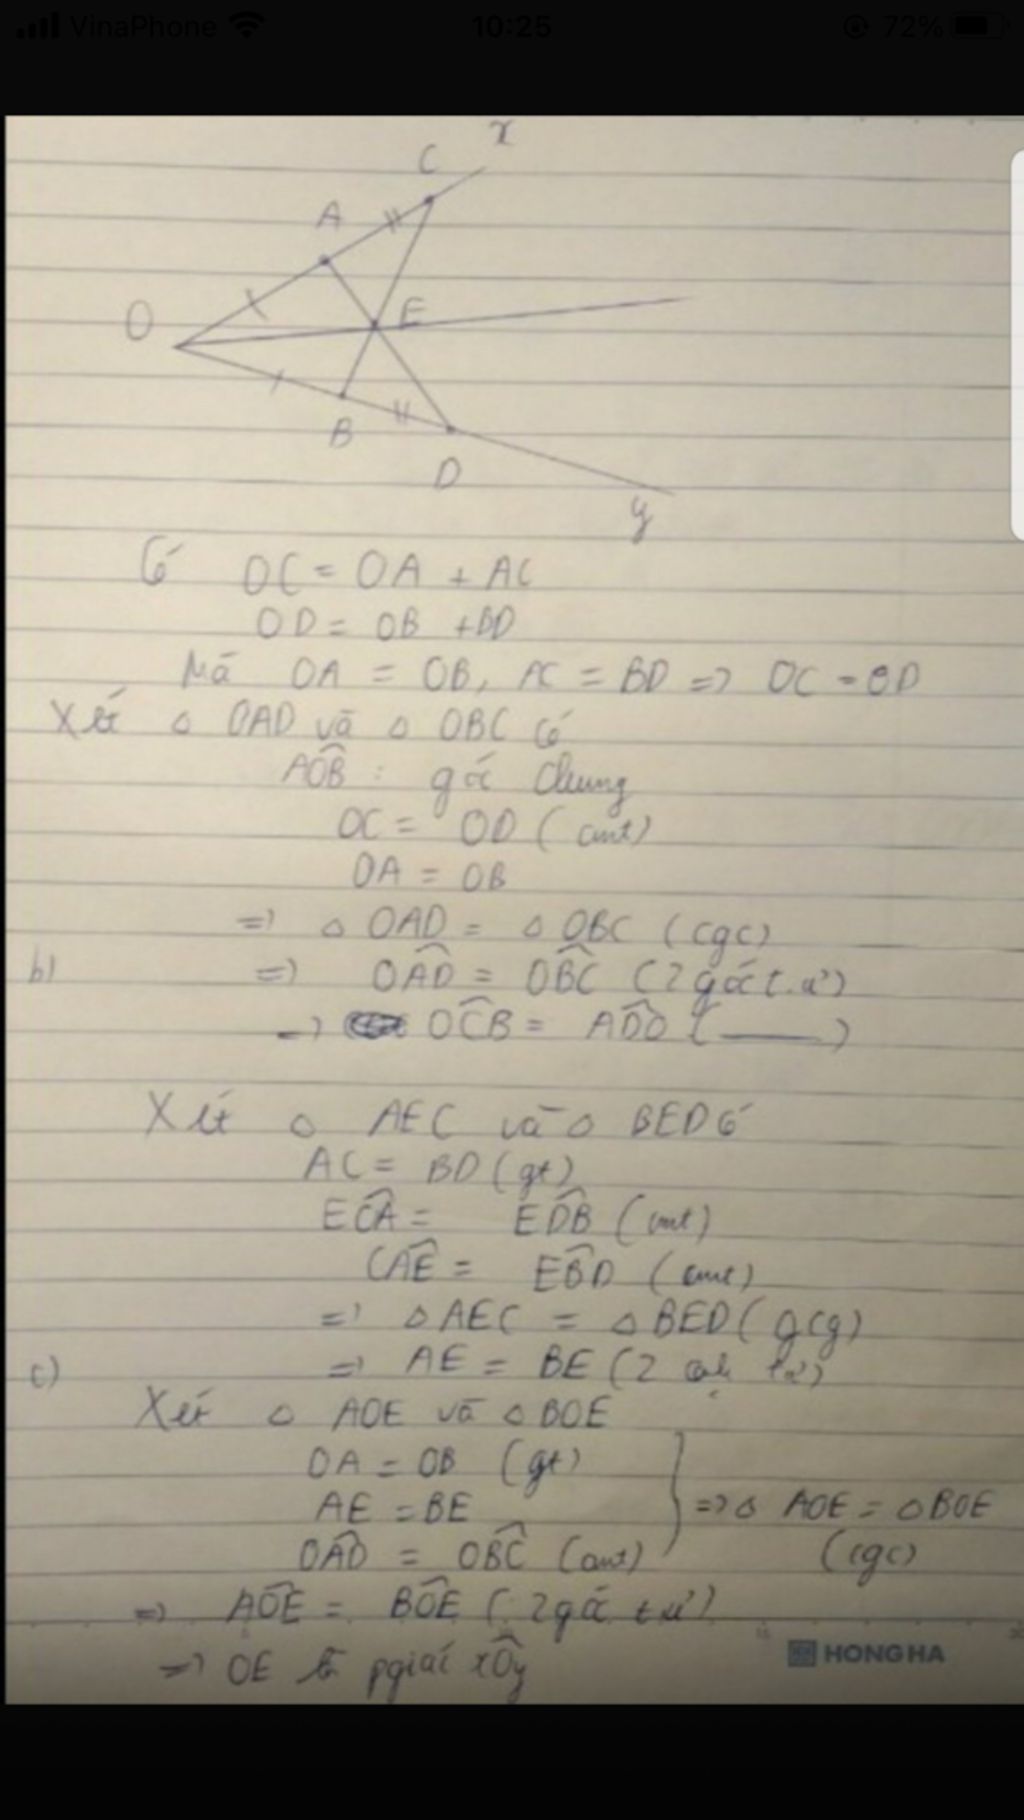 VinaPhone 10:25 72%
x
C
A
O
E
B
D
y
Có OC = OA + AC
OD = OB + BD
Mà OA = OB, AC = BD => OC = OD
Xét △ OAD và △ OBC có
AÔB : góc chung
OC = OD (cmt)
OA = OB
=> △ OAD = △ OBC (cgc)
b) => OÂD = OB̂C (2 góc t.ư)
=> OĈB = AD̂O (——)
Xét △ AEC và △ BED có
AC = BD (gt)
EĈA = ED̂B (cmt)
CÂE = EB̂D (cmt)
=> △ AEC = △ BED (gcg)
c) => AE = BE (2 cạh tư)
Xét △ AOE và △ BOE
OA = OB (gt)
AE = BE => △ AOE = △ BOE
OÂD = OB̂C (cmt) (cgc)
=> AÔE = BÔE (2 góc t ư)
=> OE là pgiác xÔy
HONG HA